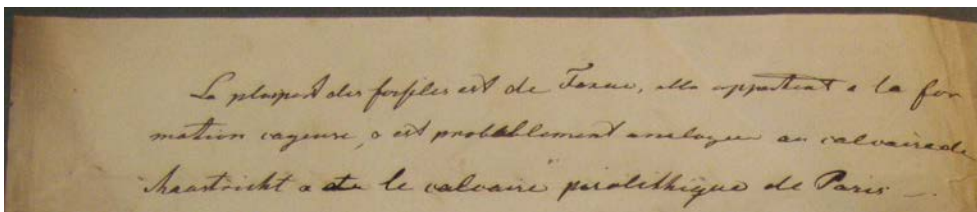 La plupart des fossiles est de Faxue, elle appartient a la for
mation crayeuse, c est probablement analogue au calcaire de
Maastricht a du le calcaire pisolithique de Paris —.